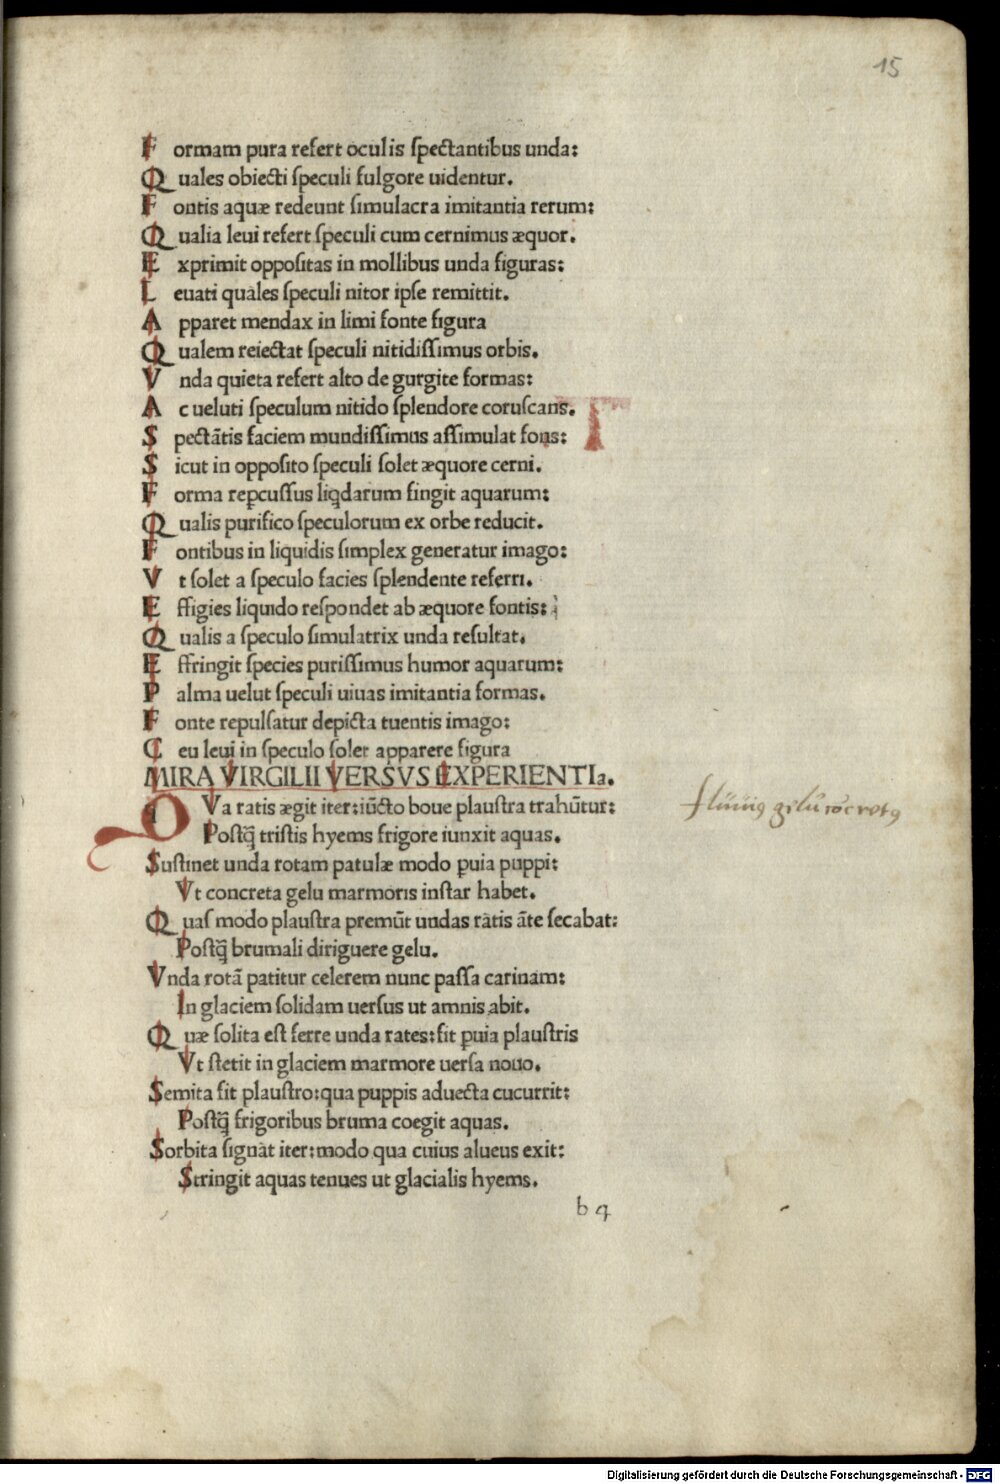 15
Formam pura refert oculis ſpectantibus unda:
Quales obiecti ſpeculi fulgore uidentur.
Fontis aquæ redeunt ſimulacra imitantia rerum:
Qualia leui refert ſpeculi cum cernimus æquor.
Exprimit oppoſitas in mollibus unda figuras:
Leuati quales ſpeculi nitor ipſe remittit.
Apparet mendax in limi fonte figura
Qualem reiectat ſpeculi nitidiſſimus orbis.
Vnda quieta refert alto de gurgite formas:
Ac ueluti ſpeculum nitido ſplendore coruſcans.
Spectãtis faciem mundiſſimus aſſimulat fons:
Sicut in oppoſito ſpeculi ſolet æquore cerni.
Forma rep̱cuſſus liq̇darum fingit aquarum:
Qualis purifico ſpeculorum ex orbe reducit.
Fontibus in liquidis ſimplex generatur imago:
Vt ſolet a ſpeculo facies ſplendente referri.
Effigies liquido reſpondet ab æquore fontis:
Qualis a ſpeculo ſimulatrix unda reſultat.
Effringit species puriſſimus humor aquarum:
Palma uelut ſpeculi uiuas imitantia formas.
Fonte repulſatur depicta tuentis imago:
Ceu leui in ſpeculo ſolet apparere figura
MIRA VIRGILII VERSVS EXPERIENTIa.
QVa ratis ægit iter:iũcto boue plauſtra trahũtur:
Poſtq̃ tristis hyems frigore iunxit aquas.
Suſtinet unda rotam patulæ modo puia puppi:
Vt concreta gelu marmoris inſtar habet.
Quas modo plauſtra premũt undas ratis ãte ſecabat:
Poſtq̃ brumali diriguere gelu.
Vnda rotã patitur celerem nunc paſſa carinam:
In glaciem ſolidam uerſus ut amnis abit.
Quæ ſolita eſt ferre unda rates:fit p̱uia plauſtris
Vt ſtetit in glaciem marmore uerſa nouo.
Semita fit plauſtro:qua puppis aduecta cucurrit:
Poſtq̃ frigoribus bruma coegit aquas.
Sorbita ſignat iter:modo qua cuius alueus exit:
Stringit aquas tenues ut glacialis hyems.
b 4
Digitalisierung gefördert durch die Deutsche Forschungsgemeinschaft - DFG